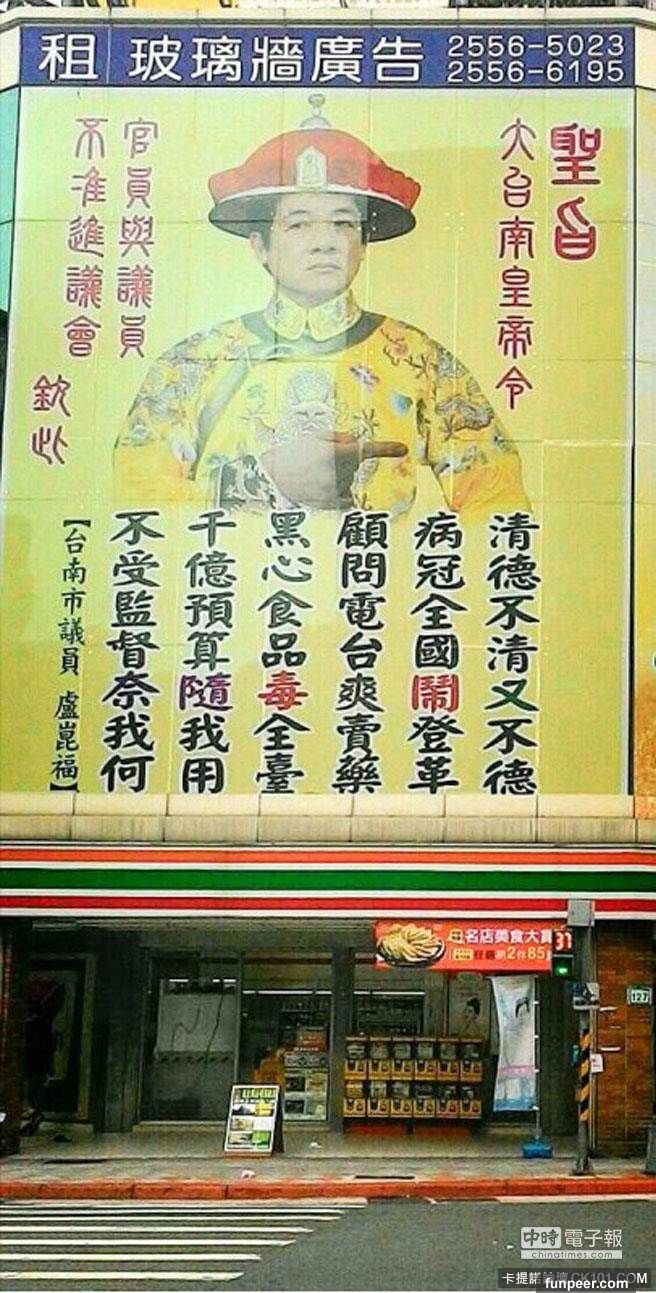 租 玻璃牆廣告 2556-5023
2556-6195
聖旨
大台南皇帝令
官員與議員
不准進議會
欽此
清德不清又不德
病冠全國鬧登革
顧問電台爽賣藥
黑心食品毒全臺
千億預算隨我用
不受監督奈我何
【台南市議員 盧崑福】
名店美食大賞
2件85
37
127
中時電子報
chinatimes.com
卡提諾論壇 CK101.COM
funpeer.com